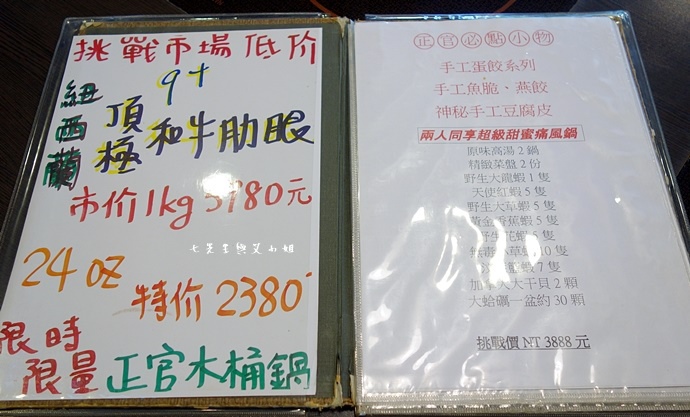 挑戰市場低价
紐西蘭
9+
頂極和牛肋眼
市价1kg 3780元
七先生與艾小姐
24oz
特价2380
限時
限量
正官木桶鍋
正官必點小物
手工蛋餃系列
手工魚脆、燕餃
神秘手工豆腐皮
兩人同享超級甜蜜痛風鍋
原味高湯 2 鍋
精緻菜盤 2 份
野生大龍蝦 1 隻
天使紅蝦 5 隻
野生大草蝦 5 隻
黃金香蕉蝦 5 隻
野生花蝦 6 隻
無毒小草蝦 10 隻
盤蝦 7 隻
加拿大大干貝 2 顆
大蛤礪一盆約 30 顆
挑戰價 NT 3888 元